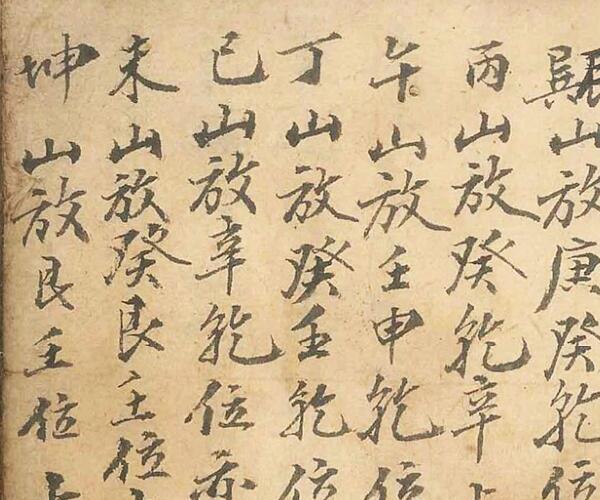 巽山放庚癸乾位
丙山放癸乾辛
午山放壬申乾位
丁山放癸壬乾位
巳山放辛乾位亦
未山放癸艮壬位
坤山放艮壬位